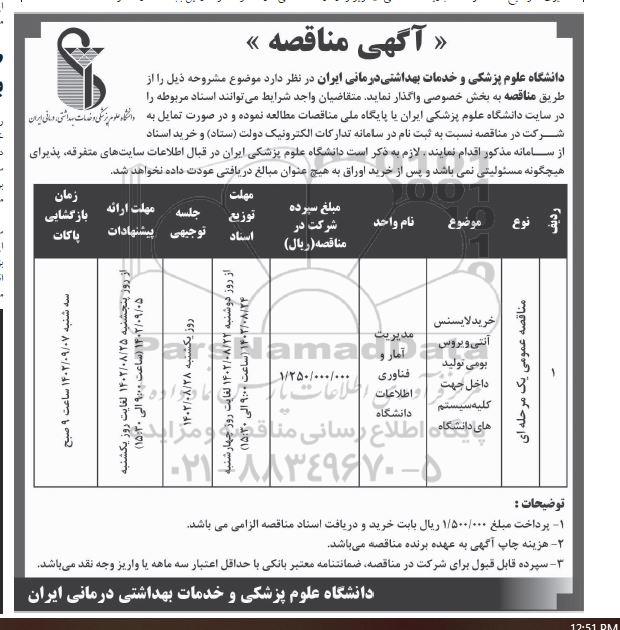 « آگهی مناقصه »
دانشگاه علوم پزشکی و خدمات بهداشتی، درمانی ایران
دانشگاه علوم پزشکی و خدمات بهداشتی‌درمانی ایران در نظر دارد موضوع مشروحه ذیل را از
طریق مناقصه به بخش خصوصی واگذار نماید. متقاضیان واجد شرایط می‌توانند اسناد مربوطه را
در سایت دانشگاه علوم پزشکی ایران یا پایگاه ملی مناقصات مطالعه نموده و در صورت تمایل به
شرکت در مناقصه نسبت به ثبت نام در سامانه تدارکات الکترونیک دولت (ستاد) و خرید اسناد
از سامانه مذکور اقدام نمایند . لازم به ذکر است دانشگاه علوم پزشکی ایران در قبال اطلاعات سایت‌های متفرقه، پذیرای
هیچگونه مسئولیتی نمی باشد و پس از خرید اوراق به هیچ عنوان مبالغ دریافتی عودت داده نخواهد شد.
ردیف
نوع
موضوع
نام واحد
مبلغ سپرده
شرکت در
مناقصه(ریال)
مهلت
توزیع
اسناد
جلسه
توجیهی
مهلت ارائه
پیشنهادات
زمان
بازگشایی
پاکات
۱
مناقصه عمومی یک مرحله ای
خرید لایسنس
آنتی ویروس
بومی تولید
داخل جهت
کلیه سیستم
های دانشگاه
مدیریت
آمار و
فناوری
اطلاعات
دانشگاه
۱/۲۵۰/۰۰۰/۰۰۰
از روز دوشنبه ۱۴۰۲/۰۸/۲۲ لغایت روز چهارشنبه
۱۴۰۲/۰۸/۲۴ (ساعت ۹:۰۰ الی ۱۵:۳۰)
روز یکشنبه ۱۴۰۲/۰۸/۲۸
از روز پنجشنبه ۱۴۰۲/۰۸/۲۵ لغایت روز یکشنبه
۱۴۰۲/۰۹/۰۵ (ساعت ۹:۰۰ الی ۱۵:۳۰)
سه شنبه ۱۴۰۲/۰۹/۰۷ ساعت ۹ صبح
ParsNamadData
پایگاه اطلاع رسانی مناقصه و مزایده
۰۲۱-۸۸۳۴۹۶۷۰-۵
توضیحات :
۱- پرداخت مبلغ ۱/۵۰۰/۰۰۰ ریال بابت خرید و دریافت اسناد مناقصه الزامی می باشد.
۲- هزینه چاپ آگهی به عهده برنده مناقصه می‌باشد.
۳- سپرده قابل قبول برای شرکت در مناقصه، ضمانتنامه معتبر بانکی با حداقل اعتبار سه ماهه یا واریز وجه نقد می‌باشد.
دانشگاه علوم پزشکی و خدمات بهداشتی درمانی ایران
12:51 PM